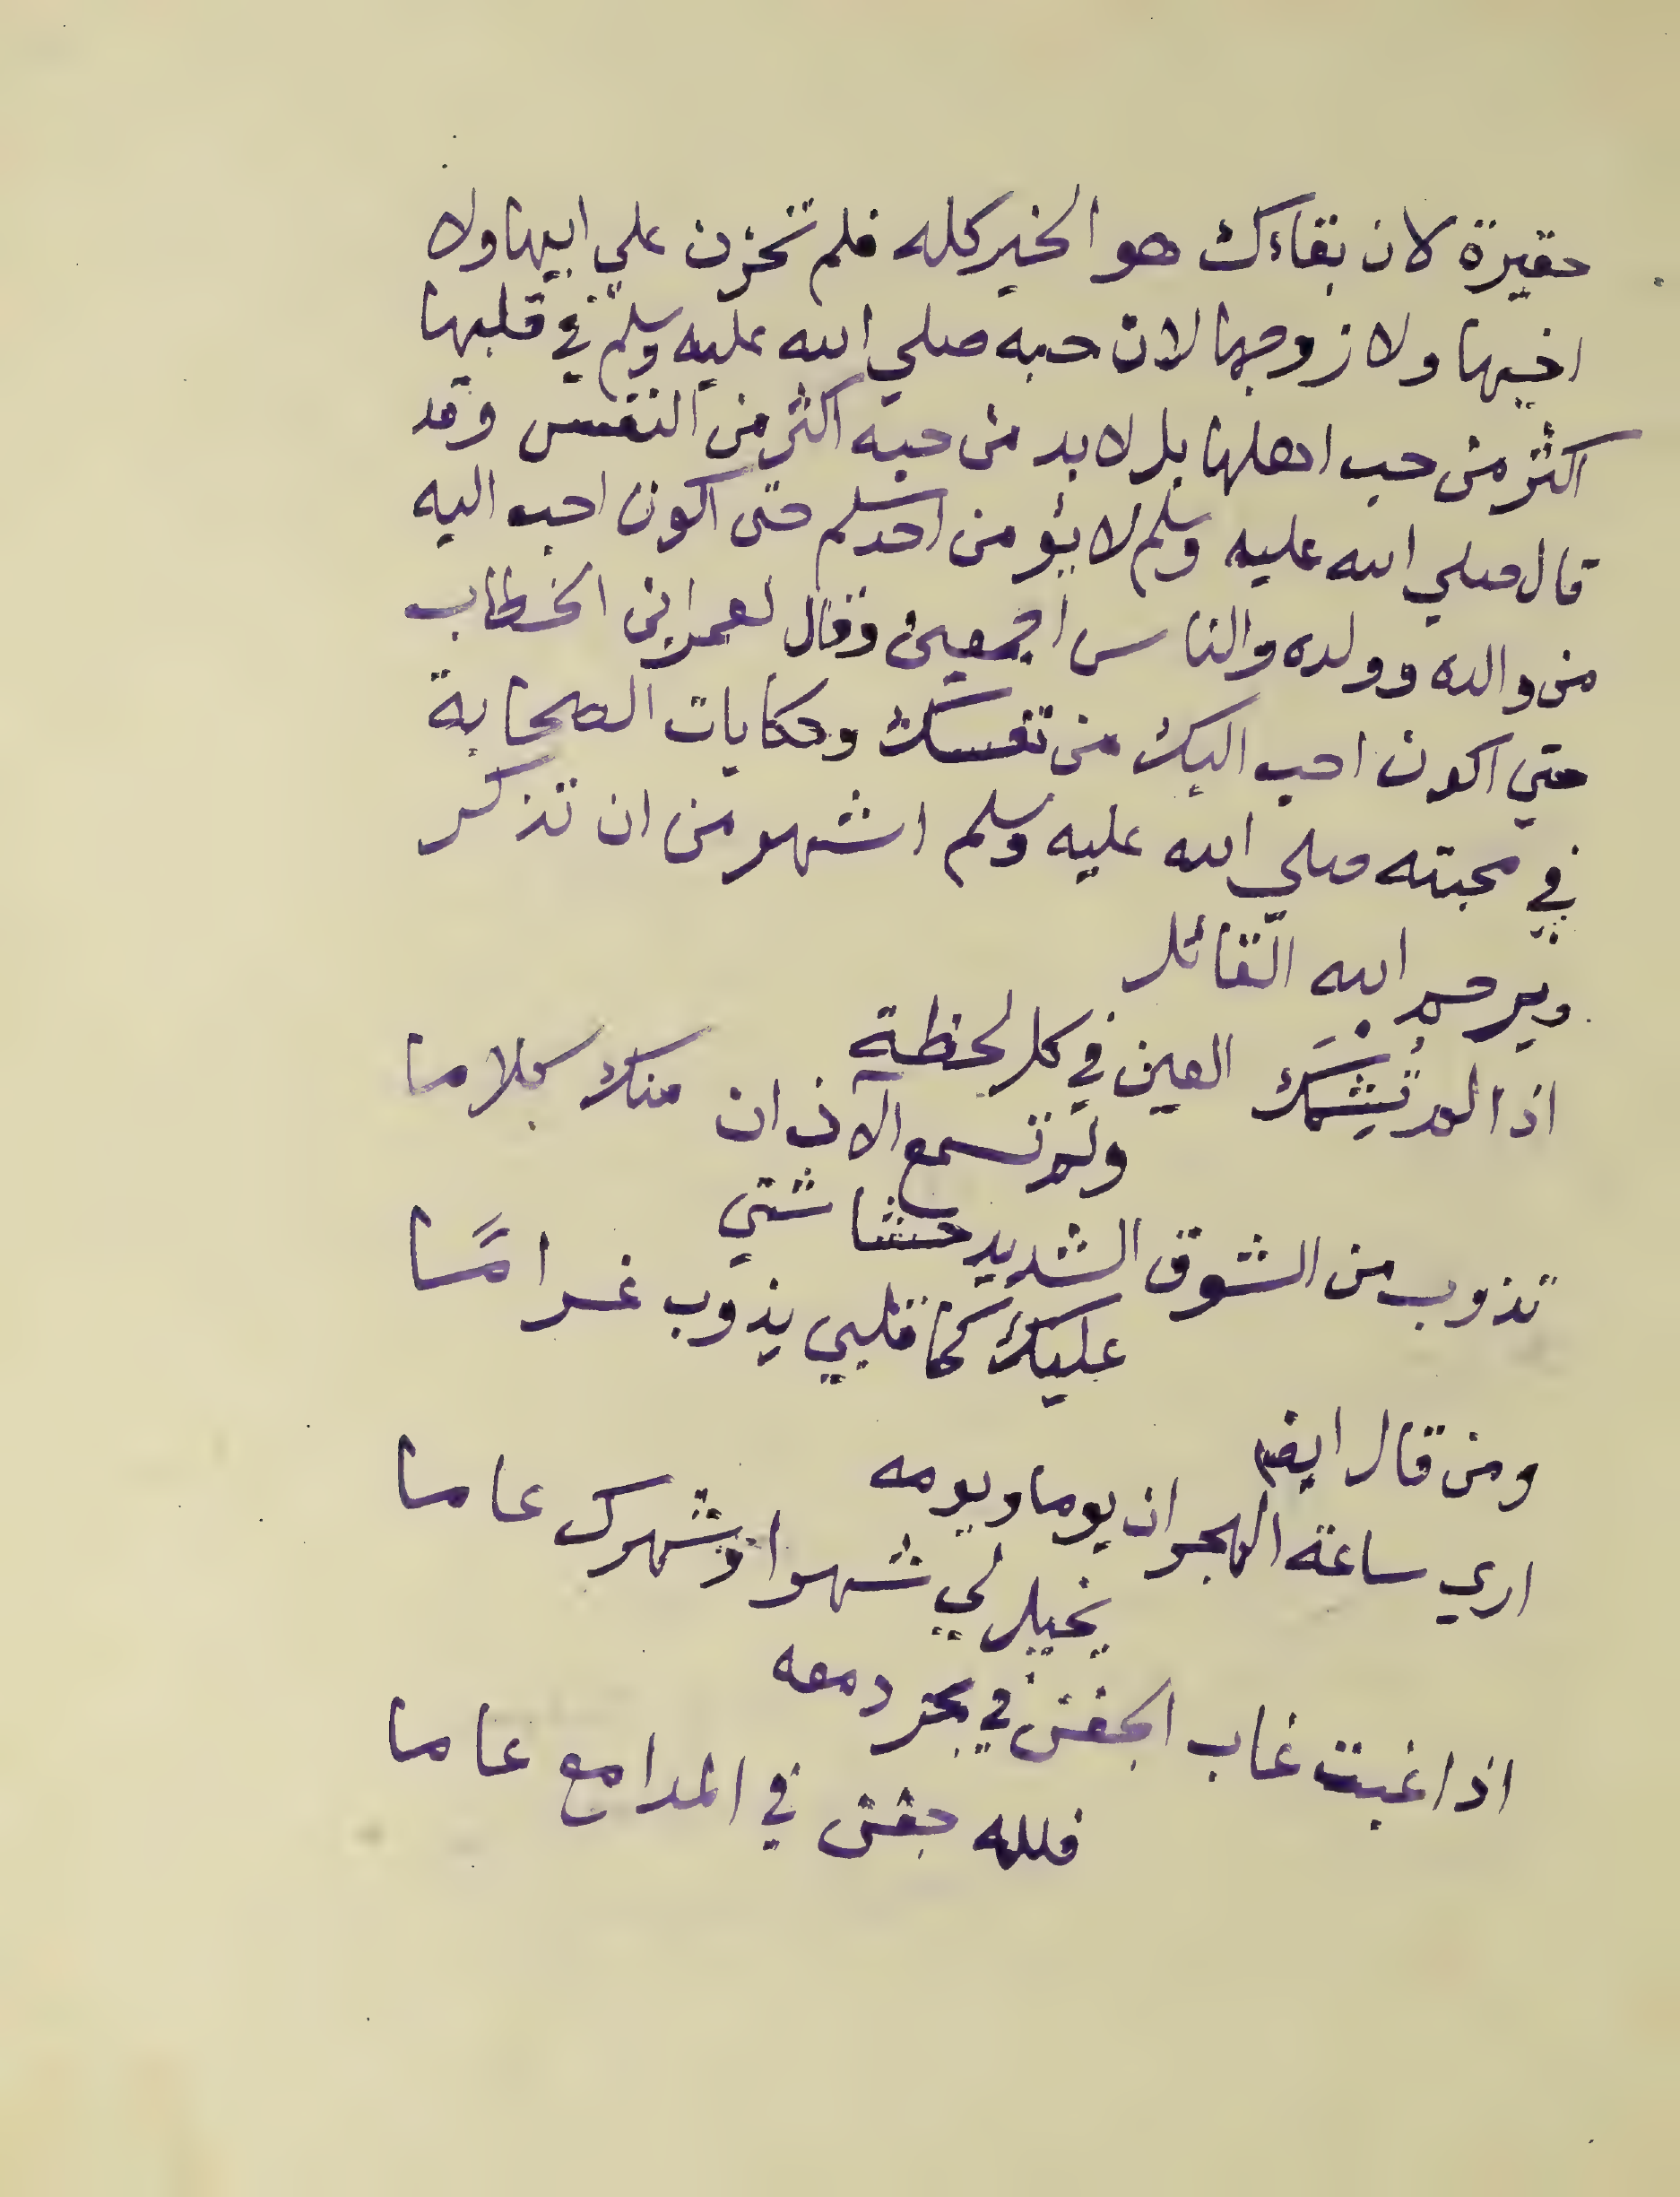 حقيرة لان بقاءك هو الخير كله فلم تحزن علي ابيها ولا
اخيها ولا زوجها لان حبه صلي الله عليه وسلم في قلبها
اكثر من حب اهلها بل لا بد من حبه اكثر من النفس وقد
قال صلي الله عليه وسلم لا يؤمن احدكم حتى اكون احب اليه
من والده وولده والناس اجمعين وقال لعمر ابن الخطاب
حتي اكون احب اليك من نفسك وحكايات الصحابة
في محبته صلي الله عليه وسلم اشهر من ان تذكر
ويرحم الله القائل
اذا لم تشمك العين في كل لحظة
ولم تسمع الآذان منك كلاما
تذوب من الشوق الشديد حشاشتي
عليك كما قلبي يذوب غراما
ومن قال ايضا
اري ساعة الهجران يوما ويومه
يخيل لي شهرا وشهرك عاما
اذا غبت غاب الجفن في بحر دمعه
فلله جفن في المدامع عاما